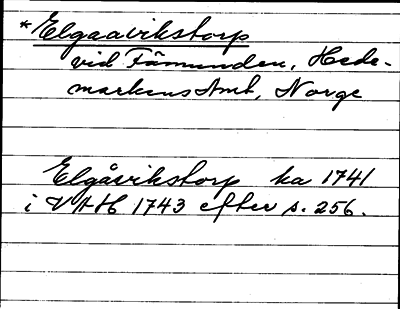 *Elgaavikstorp
vid Fämunden, Hede-
markens Amt, Norge
Elgåvikstorp ka 1741
i VAH 1743 efter s. 256.